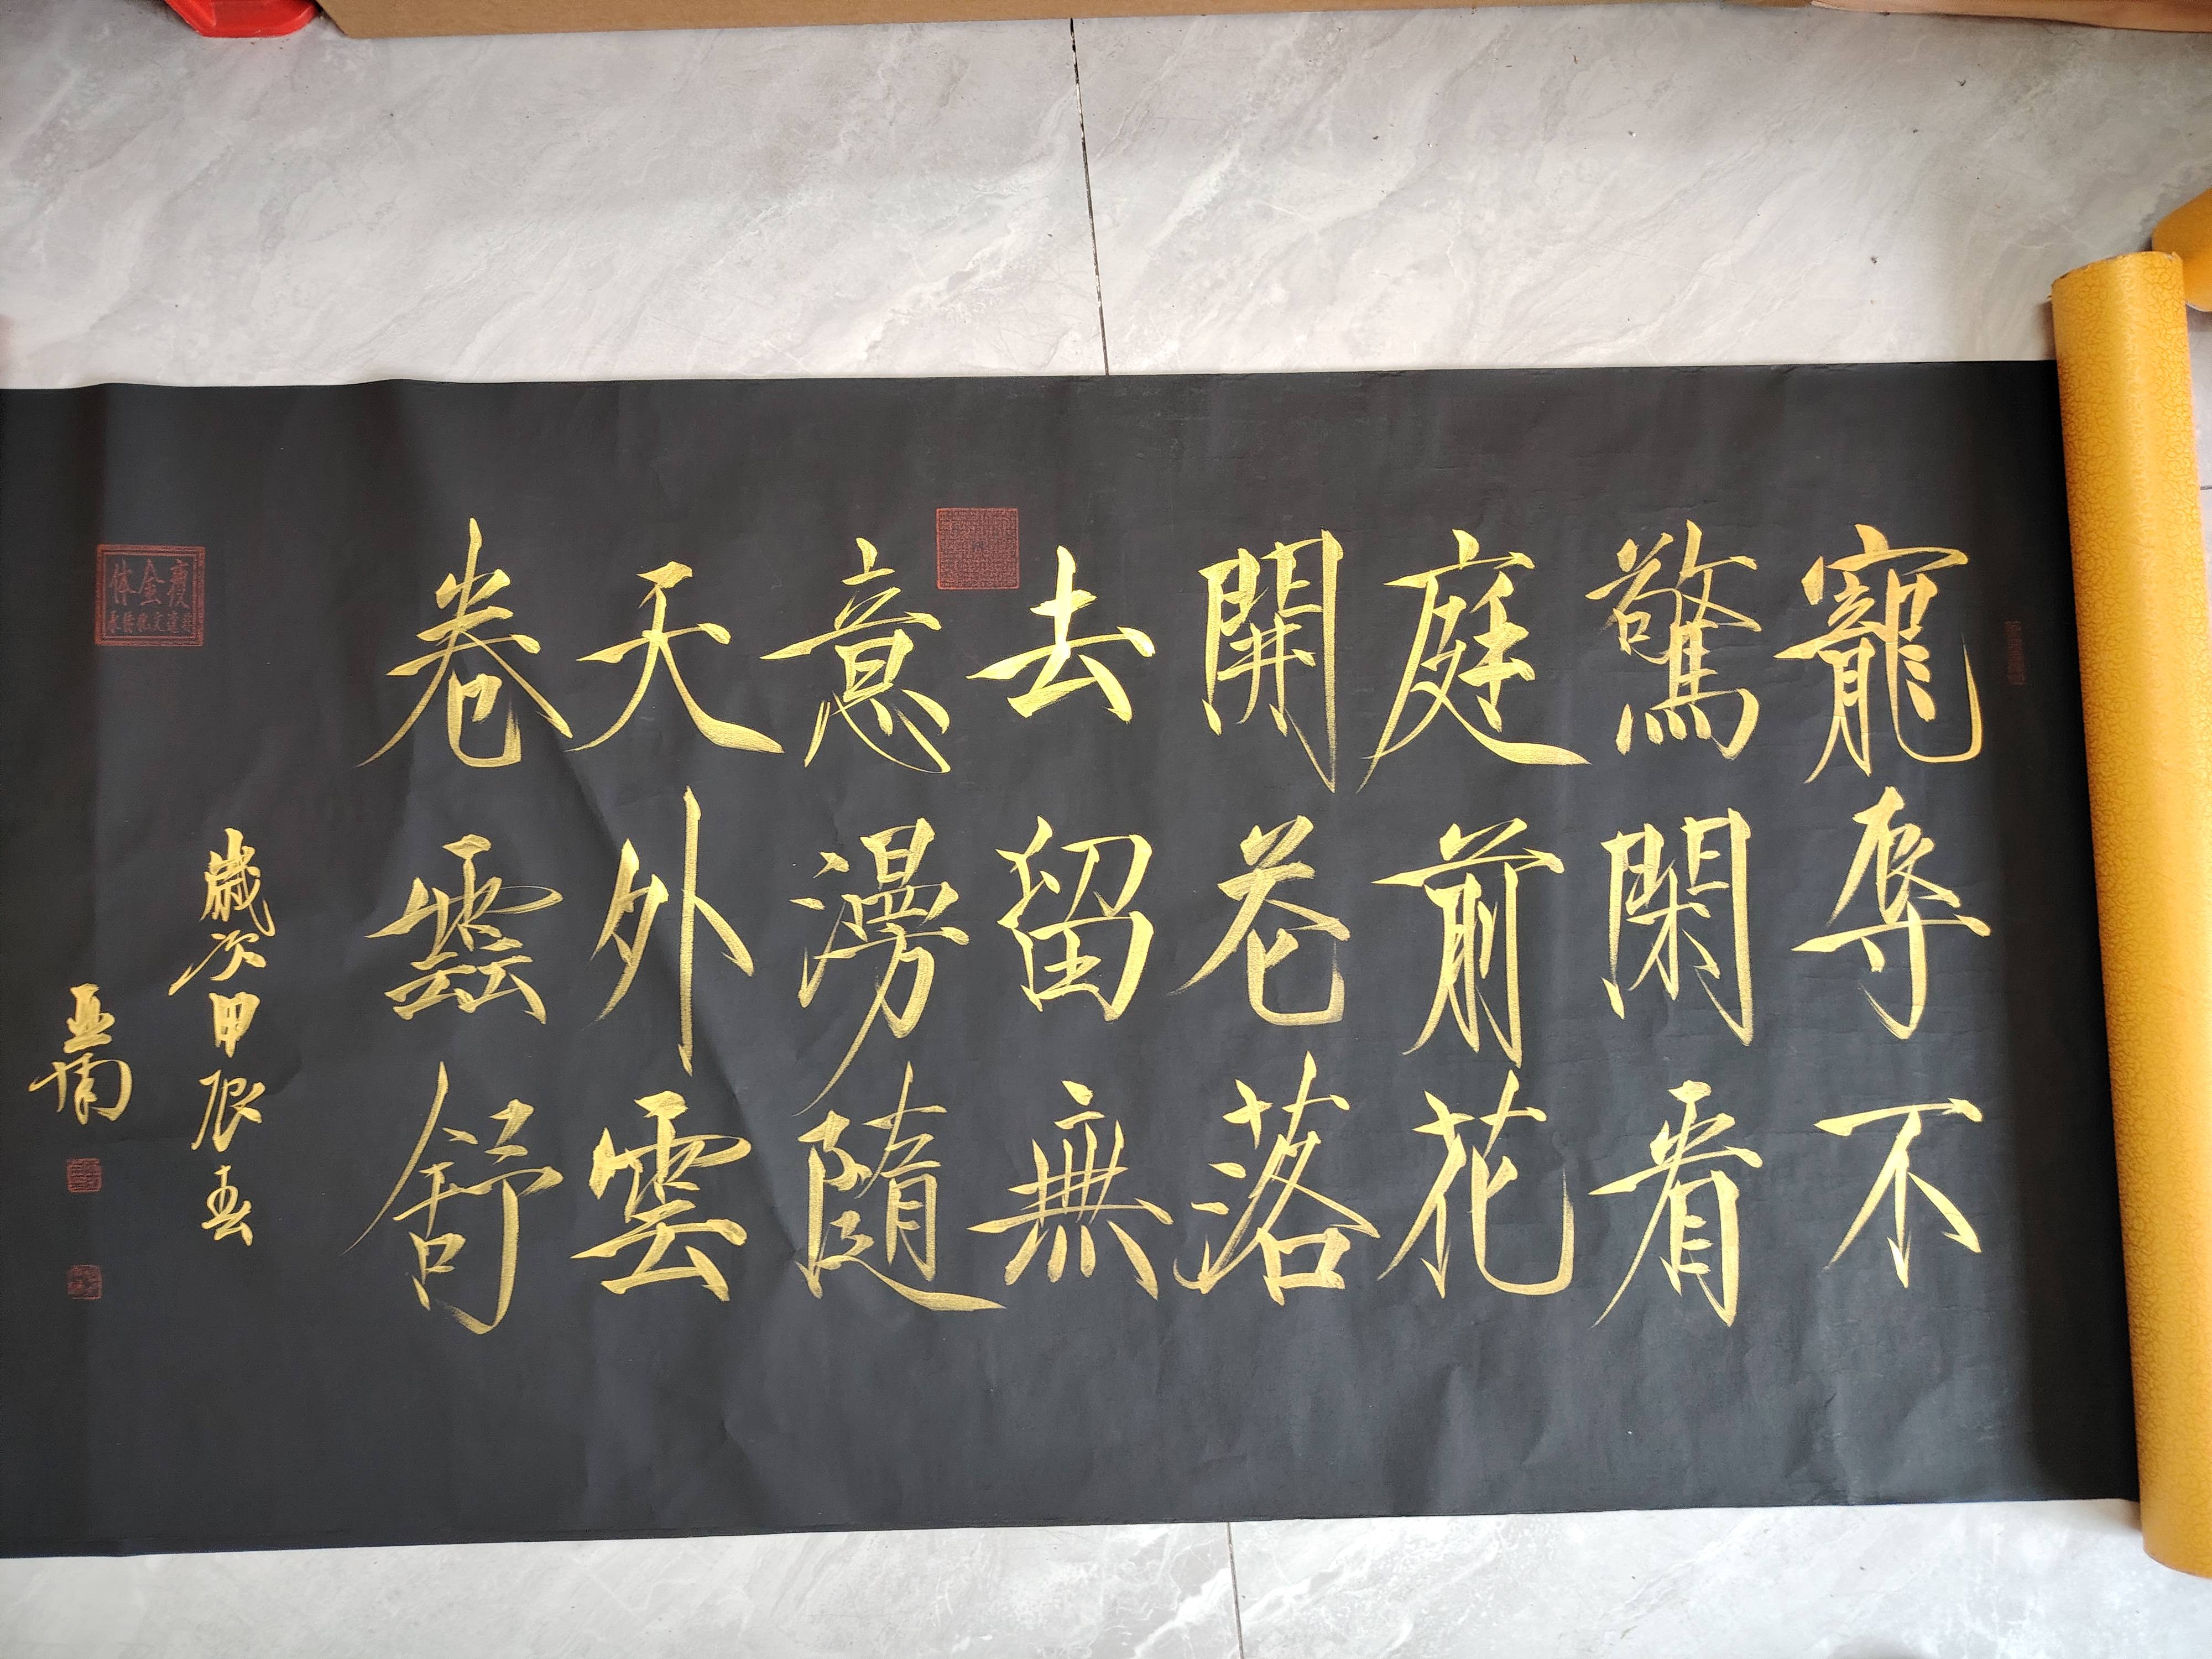 寵辱不
驚閑看
庭前花
開花落
去留無
意漫隨
天外雲
卷雲舒
歲次甲辰春
瘦金体